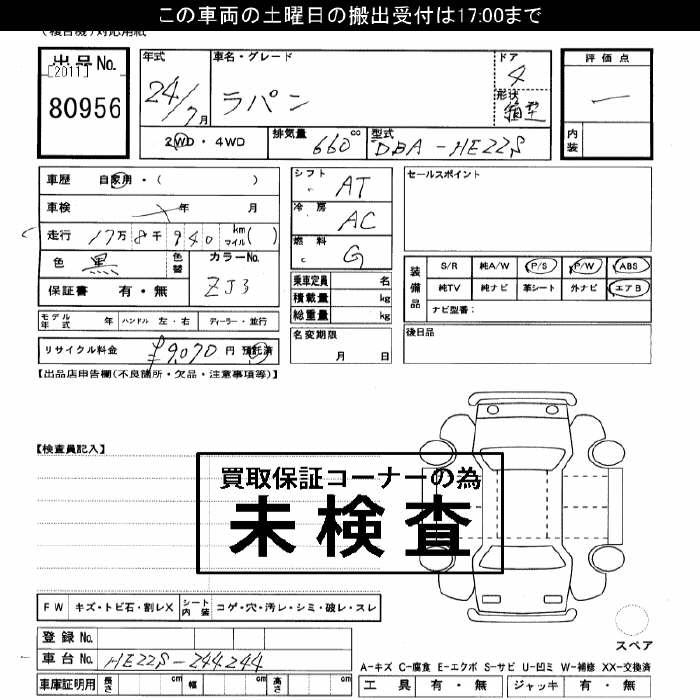 この車両の土曜日の搬出受付は17:00まで
(複合機)対応用紙
出品No.
[2011]
80956
年式
24/7月
車名・グレード
ラパン
ドア
4
形状
箱型
評価点
内装
2WD・4WD
排気量
660cc
型式
DBA-HE22S
車歴 自家用・( )
車検 年 月
走行 17万8千940 km マイル( )
色 黒
色替
カラーNo.
ZJ3
保証書 有・無
シフト
AT
冷房
AC
燃料
G
乗車定員 名
積載量 kg
総重量 kg
セールスポイント
装備品
S/R 純A/W P/S P/W ABS
純TV 純ナビ 革シート 外ナビ エアB
ナビ型番:
モデル年式 年 ハンドル 左・右 ディーラー・並行
名変期限
月 日
後日品
リサイクル料金 ¥9,070円 預託済
【出品店申告欄(不良箇所・欠品・注意事項等)】
【検査員記入】
買取保証コーナーの為
未検査
FW キズ・トビ石・割レX シート内装 コゲ・穴・汚レ・シミ・破レ・スレ
登録No.
車台No. HE22S-244244
車庫証明用 長さ cm 幅 cm 高さ cm
スペア
A-キズ C-腐食 E-エクボ S-サビ U-凹ミ W-補修 XX-交換済
工具 有・無 ジャッキ 有・無